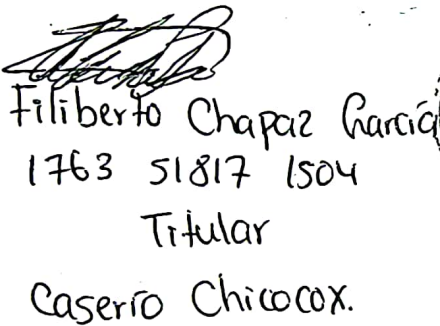 Filiberto Chapaz García
1763 51817 1504
Titular
Caserío Chicocox.